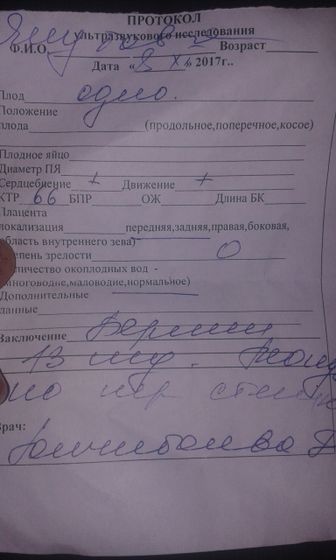 ПРОТОКОЛ
ультразвукового исследования
Ф.И.О. Возраст
Дата «8 XI 2017г..
Плод одно.
Положение
плода (продольное,поперечное,косое)
Плодное яйцо
Диаметр ПЯ
Сердцебиение + Движение +
КТР 66 БПР ОЖ Длина БК
Плацента
локализация передняя,задняя,правая,боковая,
область внутреннего зева)
степень зрелости 0
количество околплодных вод -
многоводие,маловодие,нормальное)
Дополнительные
данные
Заключение Берем
13 нед.
по пер стенке
Врач: